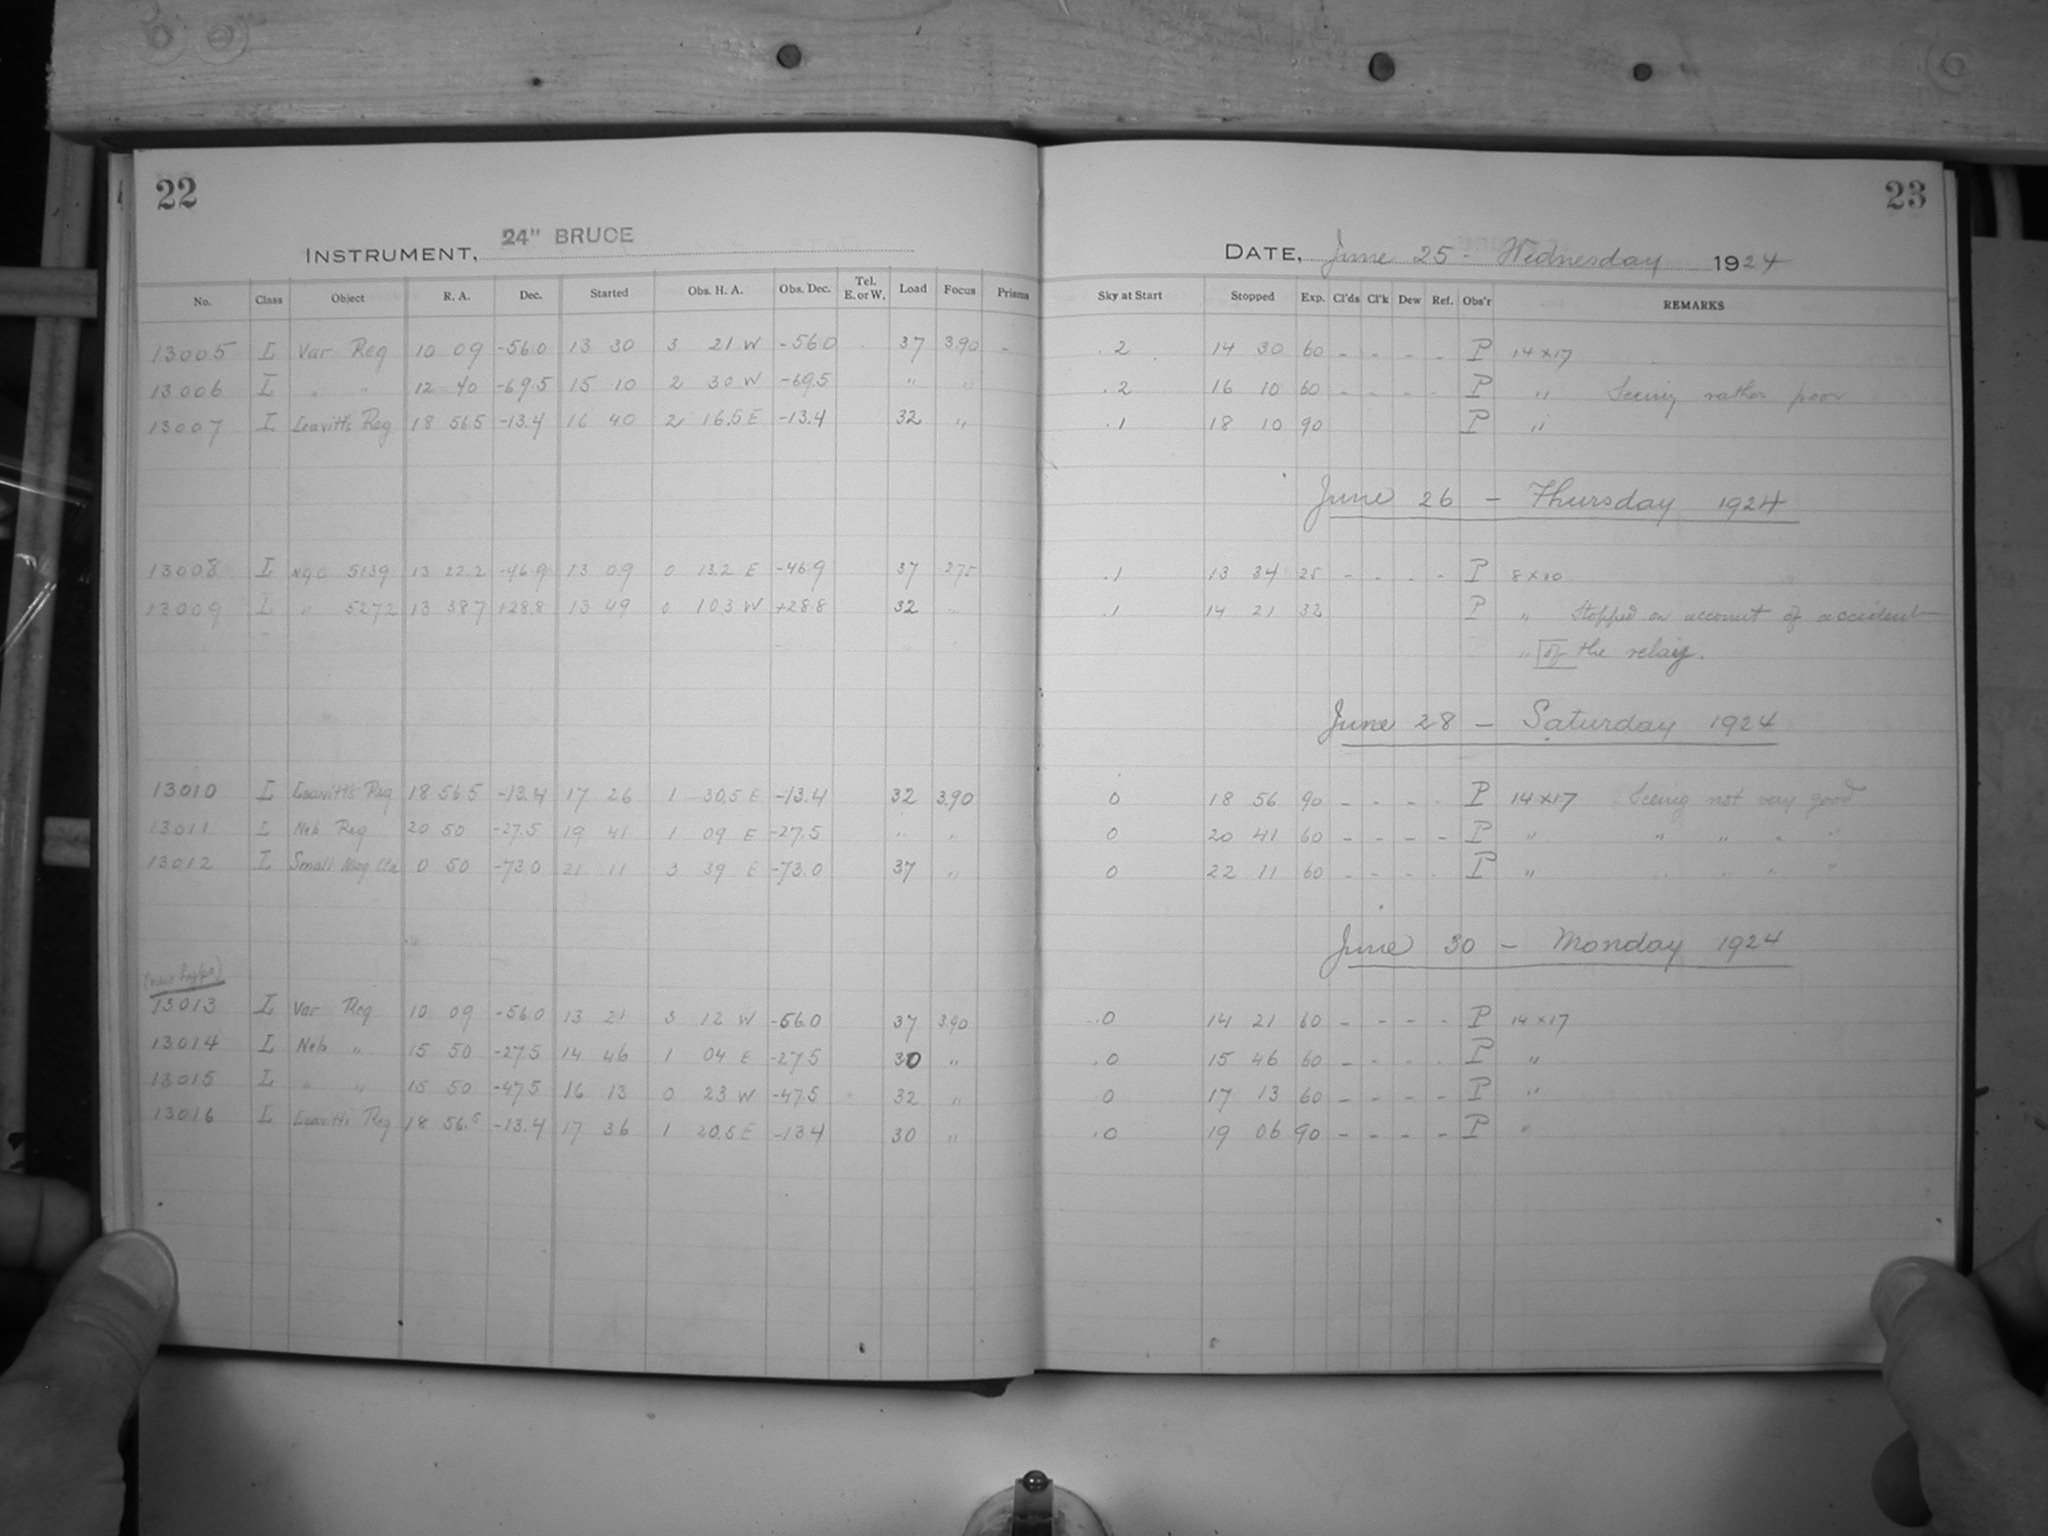 22
INSTRUMENT, 24" BRUCE
No. Class Object R. A. Dec. Started Obs. H. A. Obs. Dec. Tel. E. or W. Load Focus Prisms
13005 I Var Reg 10 09 -56.0 13 30 3 21 W -56.0 37 3.90 -
13006 I " " 12 40 -69.5 15 10 2 30 W -69.5 " "
13007 I Leavitt's Reg 18 56.5 -13.4 16 40 2 16.5 E -13.4 32 "
13008 I N.G.C 5139 13 22.2 -46.9 13 09 0 13.2 E -46.9 37 3.75
13009 I " 5272 13 38.7 +28.8 13 49 0 10.3 W +28.8 32 "
13010 I Leavitt's Reg 18 56.5 -13.4 17 26 1 30.5 E -13.4 32 3.90
13011 I Neb Reg 20 50 -27.5 19 41 1 09 E -27.5 " "
13012 I Small Mag Cld 0 50 -73.0 21 11 3 39 E -73.0 37 "
13013 I Var Reg 10 09 -56.0 13 21 3 12 W -56.0 37 3.90
13014 I Neb " 15 50 -27.5 14 46 1 04 E -27.5 30 "
13015 I " " 15 50 -47.5 16 13 0 23 W -47.5 32 "
13016 I Leavitt's Reg 18 56.5 -13.4 17 36 1 20.5 E -13.4 30 "
23
DATE, June 25 - Wednesday 1924
Sky at Start Stopped Exp. Cl'ds Cl'k Dew Ref. Obs'r REMARKS
.2 14 30 60 - - - - P 14x17
.2 16 10 60 - - - - P " Seeing rather poor
.1 18 10 90 P "
June 26 - Thursday 1924
.1 13 34 25 - - - - P 8x10
.1 14 21 32 P " Stopped on account of accident
" of the relay.
June 28 - Saturday 1924
0 18 56 90 - - - - P 14x17 Seeing not very good
0 20 41 60 - - - - P " " " " "
0 22 11 60 - - - - P " " " " "
June 30 - Monday 1924
.0 14 21 60 - - - - P 14x17
.0 15 46 60 - - - - P "
.0 17 13 60 - - - - P "
.0 19 06 90 - - - - P "